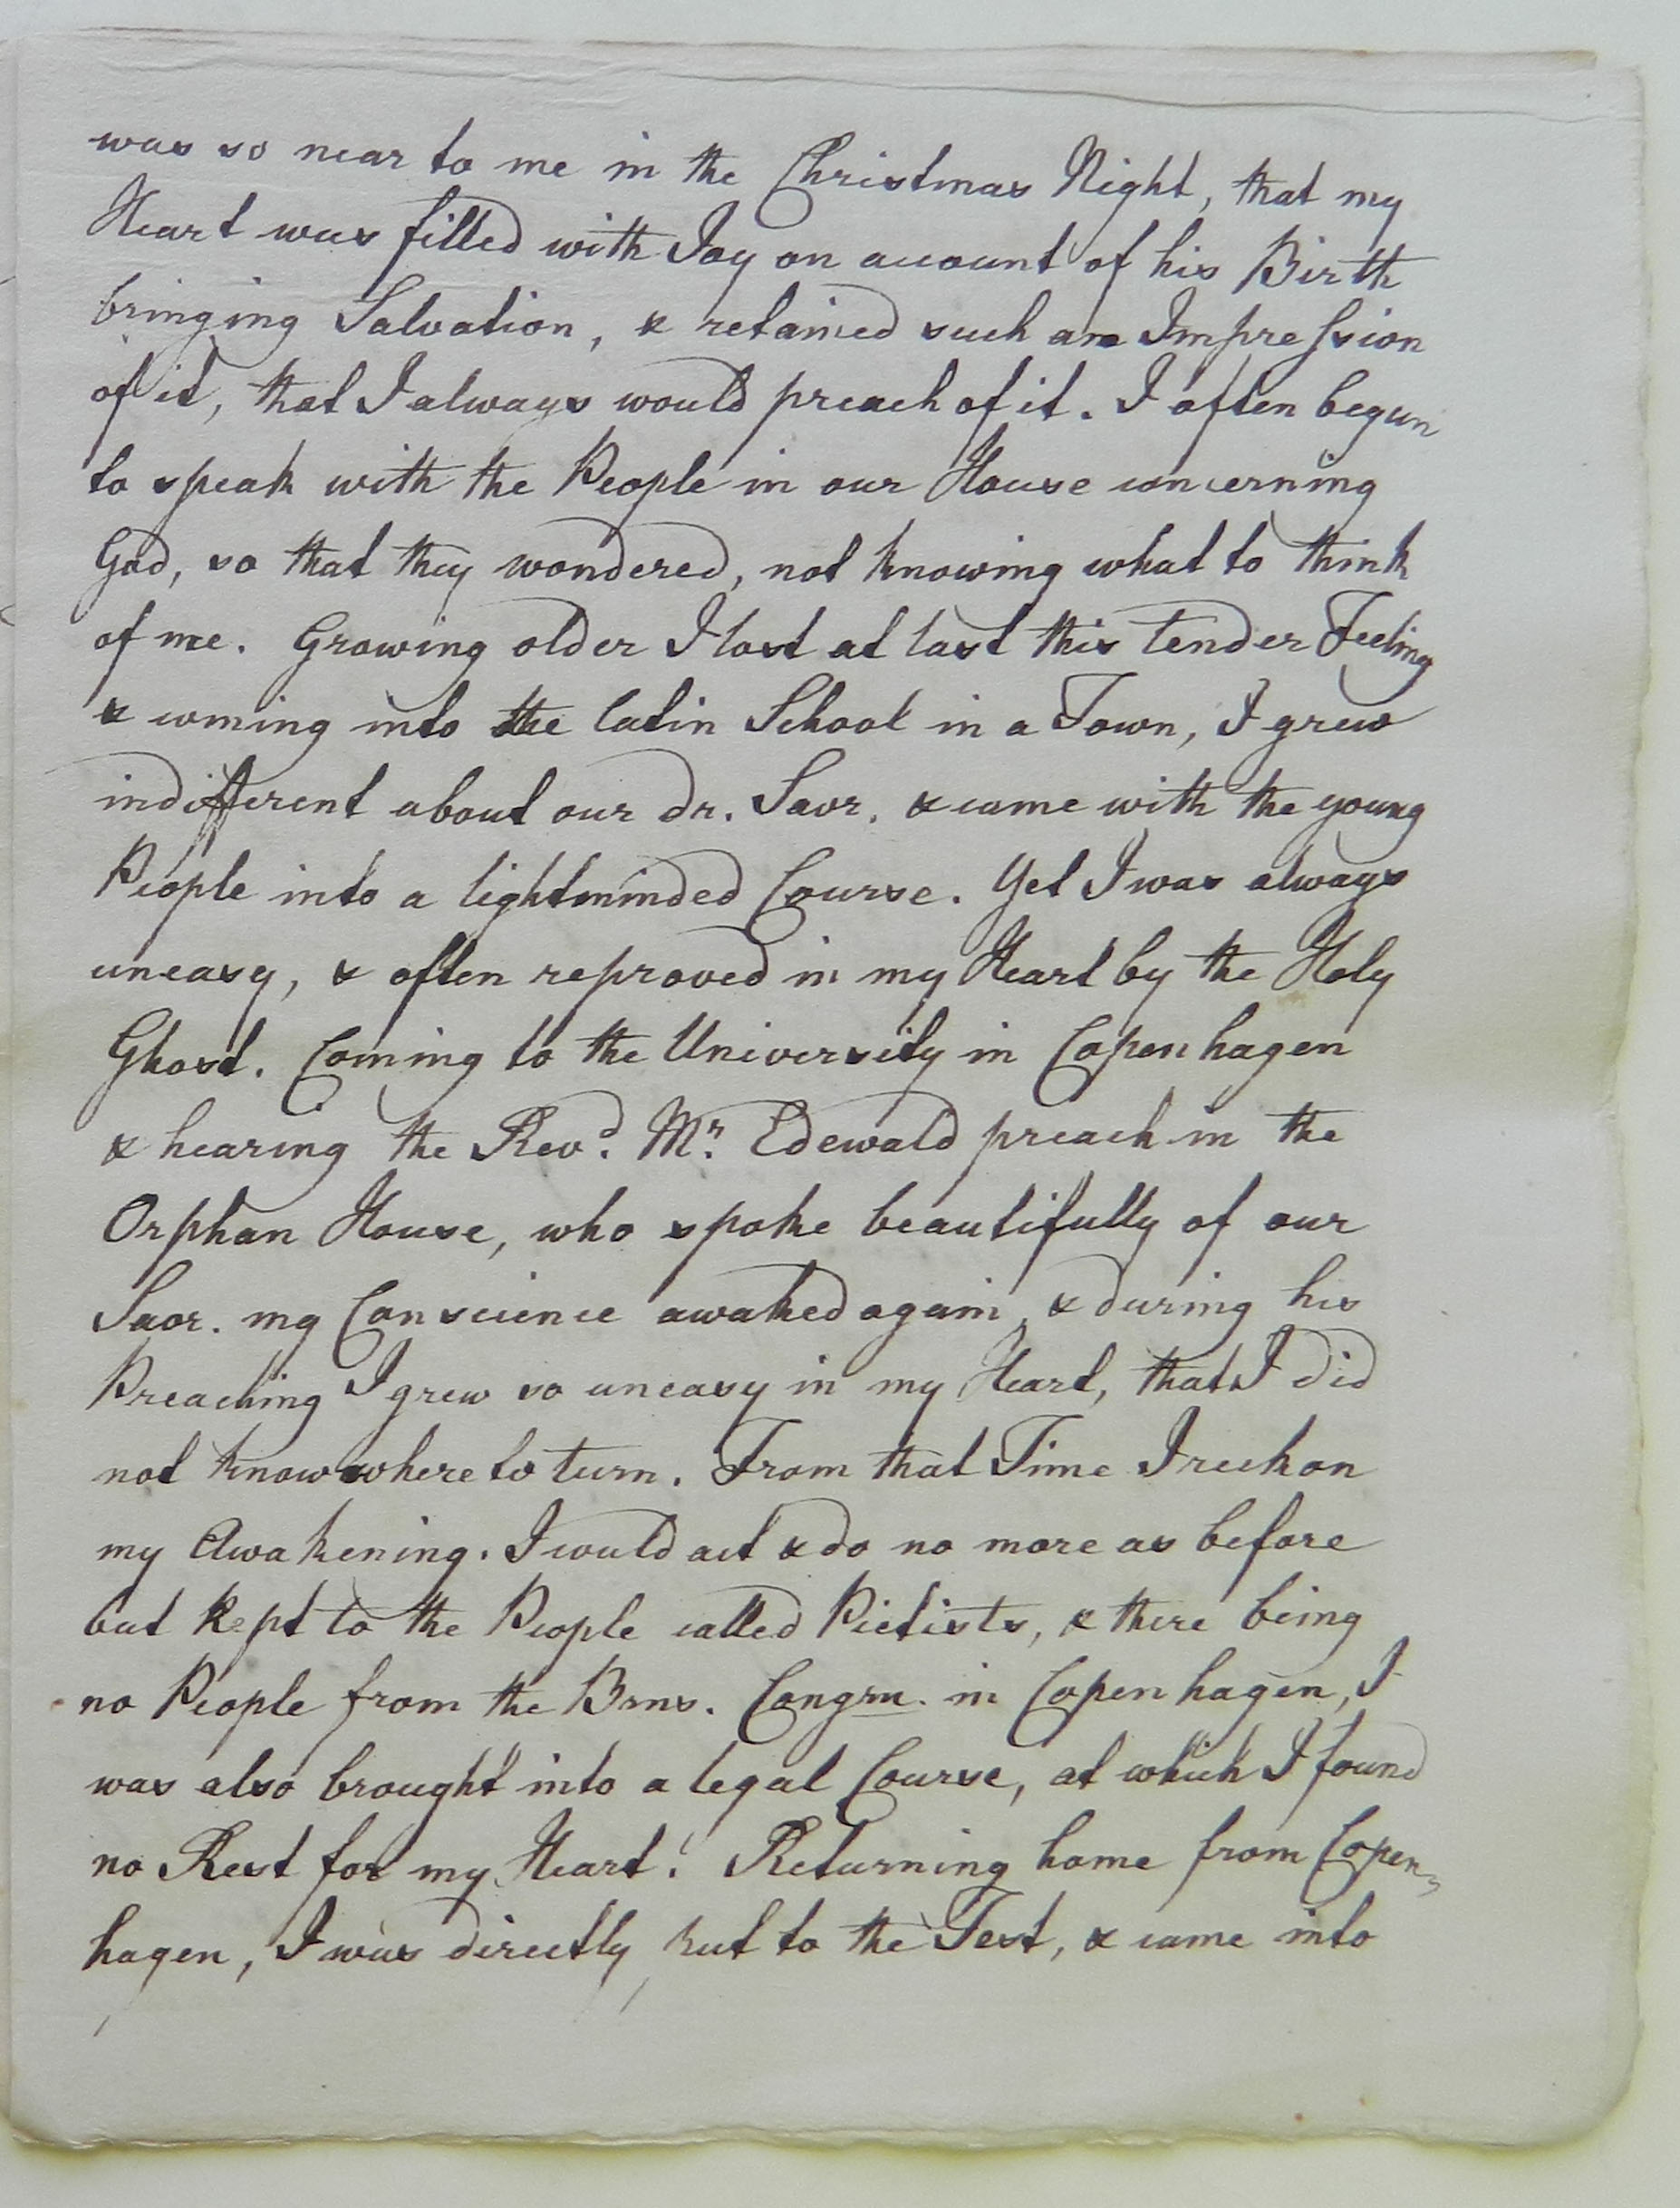 was so near to me in the Christmas Night, that my
Heart was filled with Joy on account of his Birth
bringing Salvation, & retained such an Impression
of it, that I always would preach of it. I often begun
to speak with the People in our House concerning
God, so that they wondered, not knowing what to think
of me. Growing older I lost at last this tender Feeling
& coming into the latin School in a Town, I grew
indifferent about our dr. Savr. & came with the young
People into a lightminded Course. Yet I was always
uneasy, & often reproved in my Heart by the Holy
Ghost. Coming to the University in Copenhagen
& hearing the Revd. Mr. Edewald preach in the
Orphan House, who spoke beautifully of our
Savr. my Conscience awaked again, & during his
Preaching I grew so uneasy in my Heart, that I did
not know where to turn. From that Time I reckon
my Awakening. I would act & do no more as before
but kept to the People called Pietists, & there being
no People from the Brns. Congrn. in Copenhagen, I
was also brought into a legal Course, at which I found
no Rest for my Heart. Returning home from Copen=
hagen, I was directly put to the Test, & came into